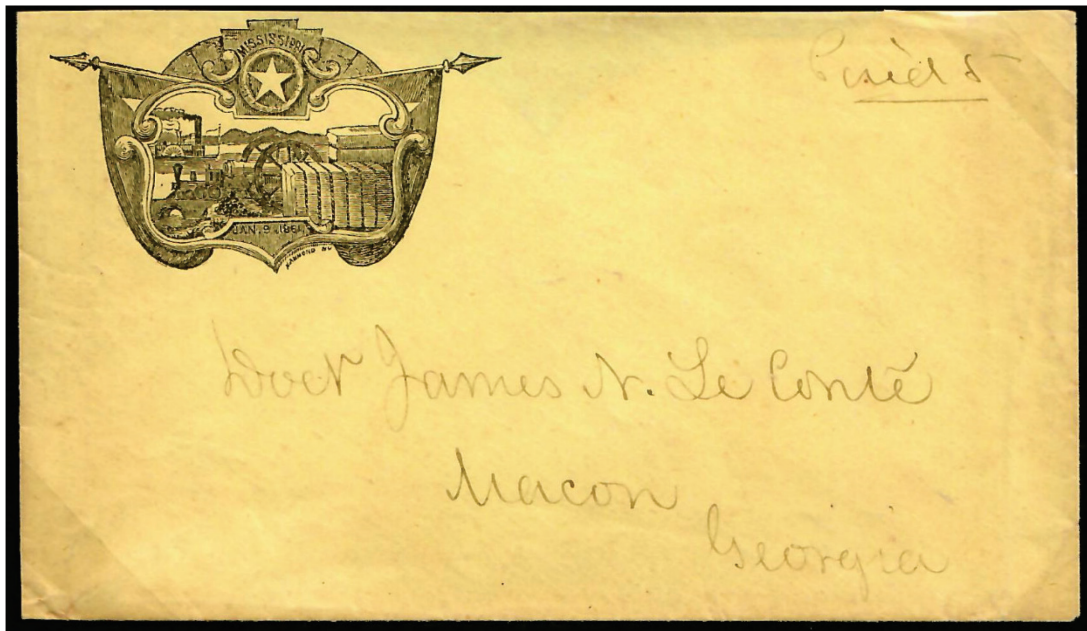 MISSISSIPPI
JAN. 9. 1861.
HAMMOND N.O.
Paid 5
Doct James N. Le Conte
Macon
Georgia